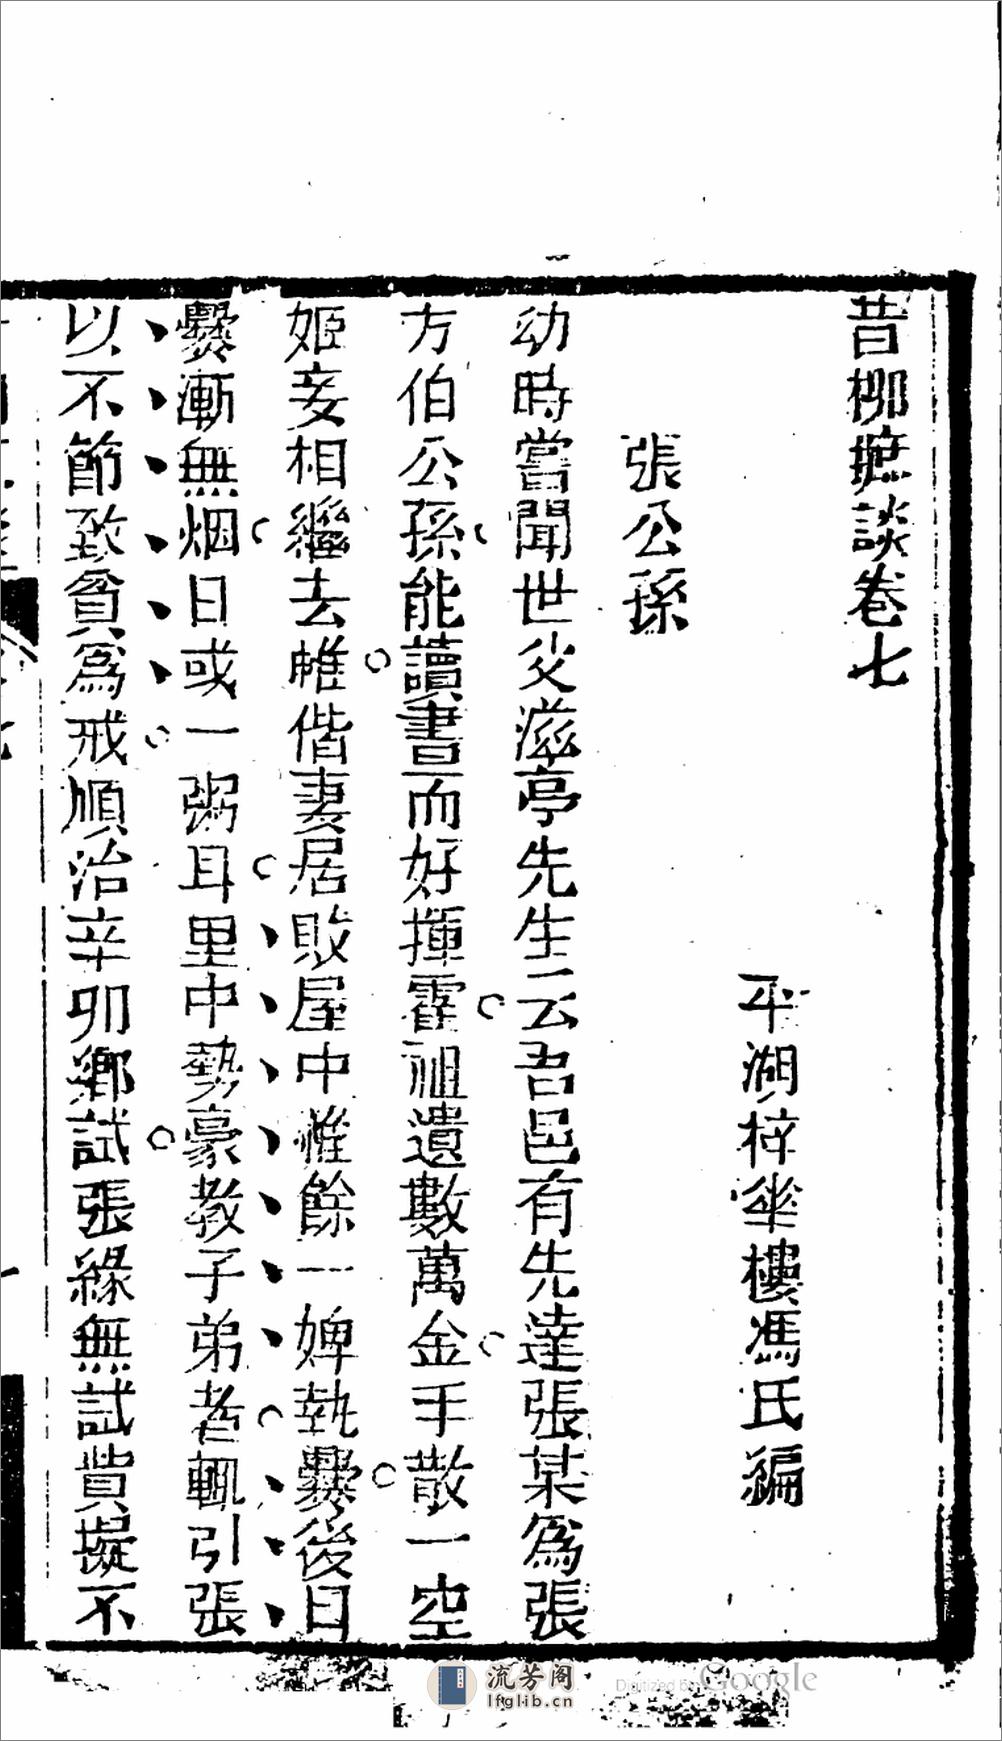 昔柳摭談卷七
平湖梓華樓馮氏編
張公孫
幼時嘗聞世父滋亭先生云吾邑有先達張某爲張
方伯公孫能讀書而好揮霍祖遺數萬金手散一空
姬妾相繼去帷偕妻居敗屋中惟餘一婢執爨後日
爨漸無烟日或一粥耳里中勢豪教子弟者輒引張
以不節致貧爲戒順治辛卯鄉試張緣無試貲擬不
流芳阁
lfglib.cn
Digitized by Google